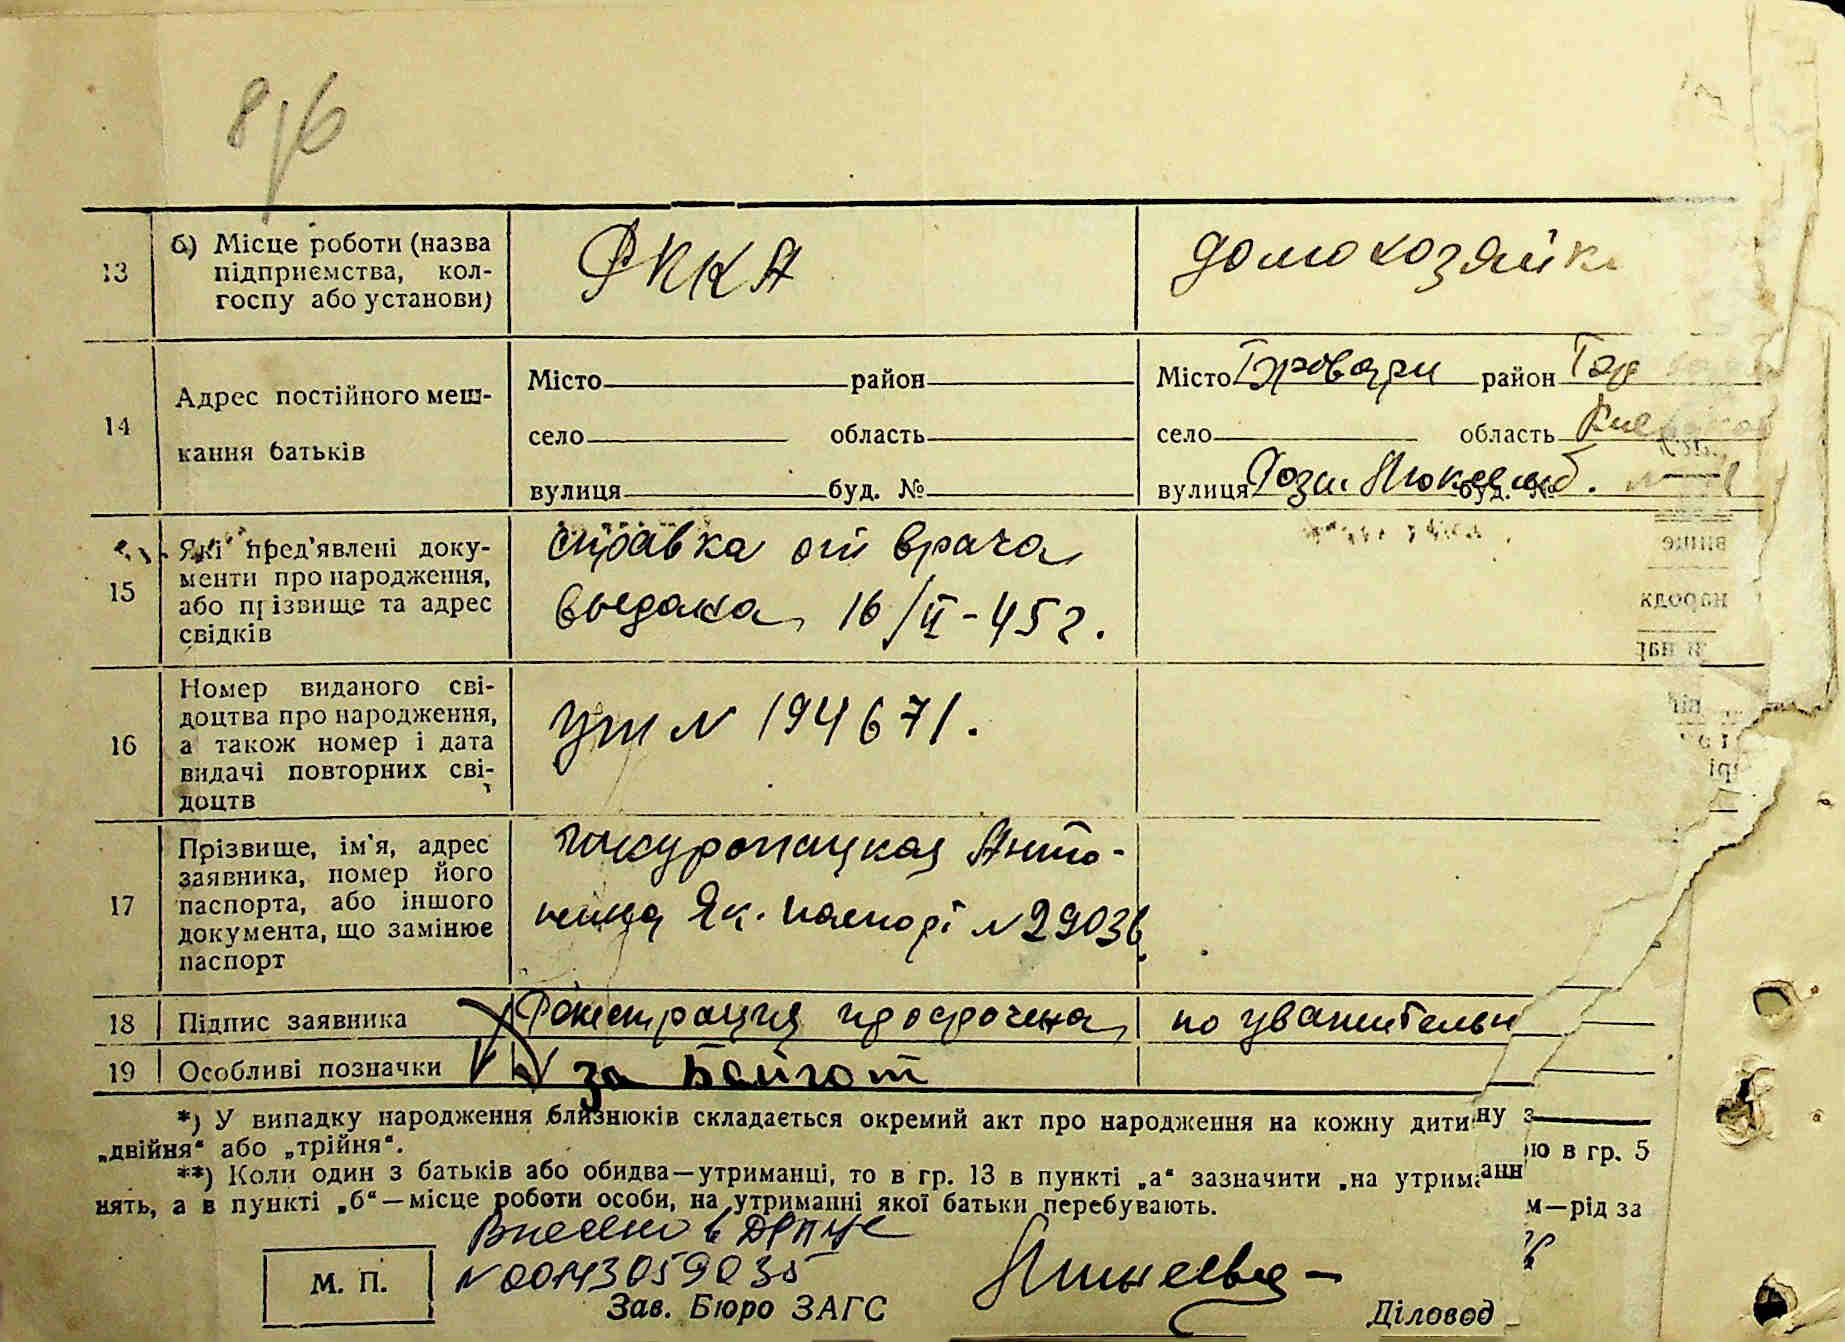 8/6
13
б) Місце роботи (назва
підприємства, кол-
госпу або установи)
РККА
домохозяйк
14
Адрес постійного меш-
кання батьків
Місто район
село область
вулиця буд. №
Місто Бровари район
село область
вулиця Рози Люксемб. буд. №
15
Які пред'явлені доку-
менти про народження,
або прізвище та адрес
свідків
справка от врача
выдана 16/II-45 г.
16
Номер виданого сві-
доцтва про народження,
а також номер і дата
видачі повторних сві-
доцтв
УШ N 194671.
17
Прізвище, ім'я, адрес
заявника, номер його
паспорта, або іншого
документа, що замінює
паспорт
Анто-
нина Як. паспорт N 29036
18
Підпис заявника
Регистрация просрочена по уважительн
19
Особливі позначки
за
*) У випадку народження близнюків складається окремий акт про народження на кожну дитину з
„двійня“ або „трійня“.
ю в гр. 5
**) Коли один з батьків або обидва—утриманці, то в гр. 13 в пункті „а“ зазначити „на утриманн
нять, а в пункті „б“—місце роботи особи, на утриманні якої батьки перебувають.
м—рід за
Внесено в ДРАЦС
N 00143059035
М. П.
Зав. Бюро ЗАГС
Діловод